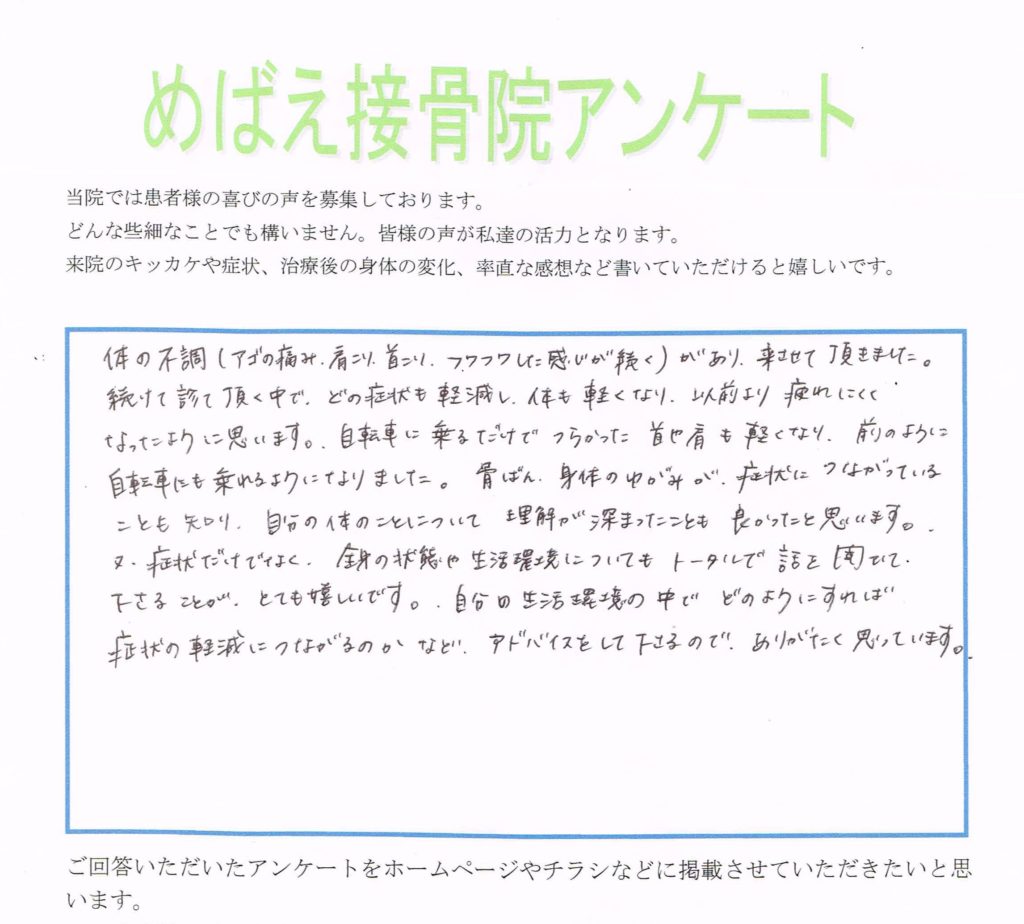 めばえ接骨院アンケート
当院では患者様の喜びの声を募集しております。
どんな些細なことでも構いません。皆様の声が私達の活力となります。
来院のキッカケや症状、治療後の身体の変化、率直な感想など書いていただけると嬉しいです。
体の不調(アゴの痛み、肩こり、首こり、フワフワした感じが続く)があり、来させて頂きました。
続けて診て頂く中で、どの症状も軽減し、体も軽くなり、以前より疲れにくく
なったように思います。自転車に乗るだけでつらかった首や肩も軽くなり、前のように
自転車にも乗れるようになりました。骨ばん、身体のゆがみが、症状につながっている
ことも知り、自分の体のことについて理解が深まったことも良かったと思います。
又、症状だけでなく、全身の状態や生活環境についてもトータルで話を聞いて、
下さることが、とても嬉しいです。自分の生活環境の中でどのようにすれば
症状の軽減につながるのかなど、アドバイスをして下さるので、ありがたく思っています。
ご回答いただいたアンケートをホームページやチラシなどに掲載させていただきたいと思
います。